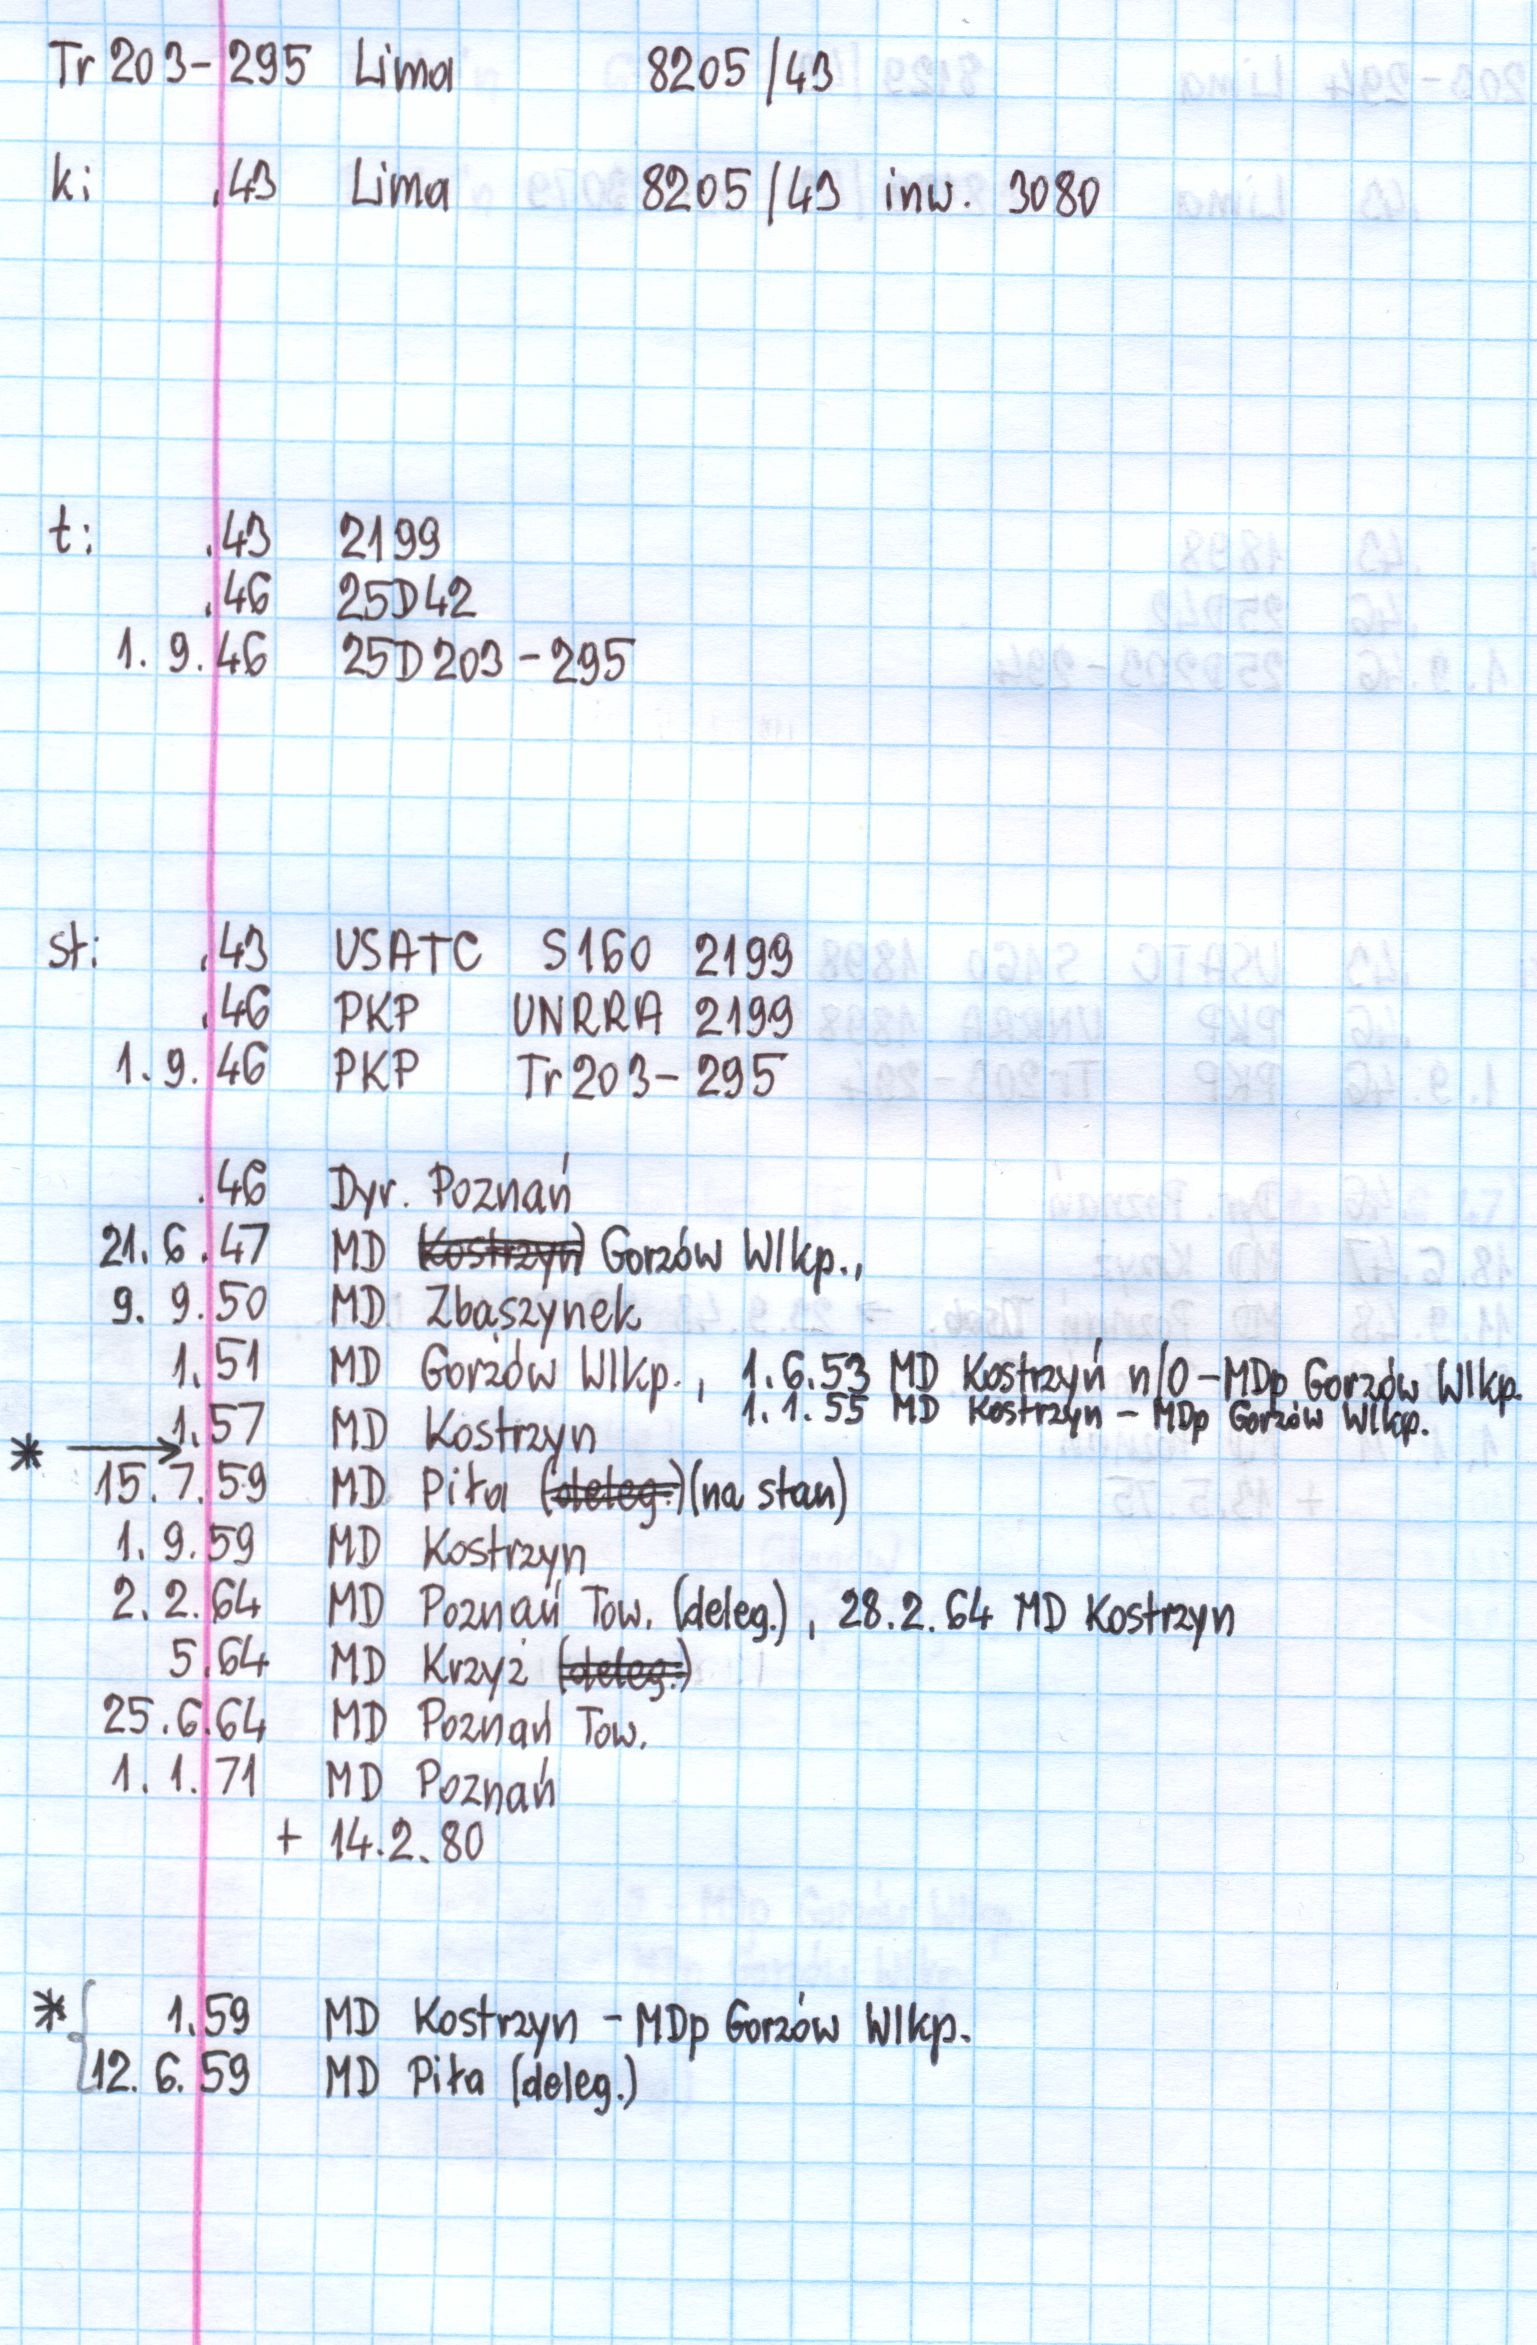 Tr 203-295 Lima 8205/43
k: .43 Lima 8205/43 inw. 3080
t: .43 2199
.46 25D42
1.9.46 25D203-295
st: .43 USATC S160 2199
.46 PKP UNRRA 2199
1.9.46 PKP Tr203-295
.46 Dyr. Poznań
21.6.47 MD Kostrzyn Gorzów Wlkp.,
9.9.50 MD Zbąszynek
1.51 MD Gorzów Wlkp., 1.6.53 MD Kostrzyń n/O-MDp Gorzów Wlkp.
1.1.55 MD Kostrzyn - MDp Gorzów Wlkp.
1.57 MD Kostrzyn
* →
15.7.59 MD Piła (deleg.) (na stan)
1.9.59 MD Kostrzyn
2.2.64 MD Poznań Tow. (deleg.), 28.2.64 MD Kostrzyn
5.64 MD Krzyż (deleg.)
25.6.64 MD Poznań Tow.
1.1.71 MD Poznań
+ 14.2.80
* { 1.59 MD Kostrzyn - MDp Gorzów Wlkp.
12.6.59 MD Piła (deleg.)